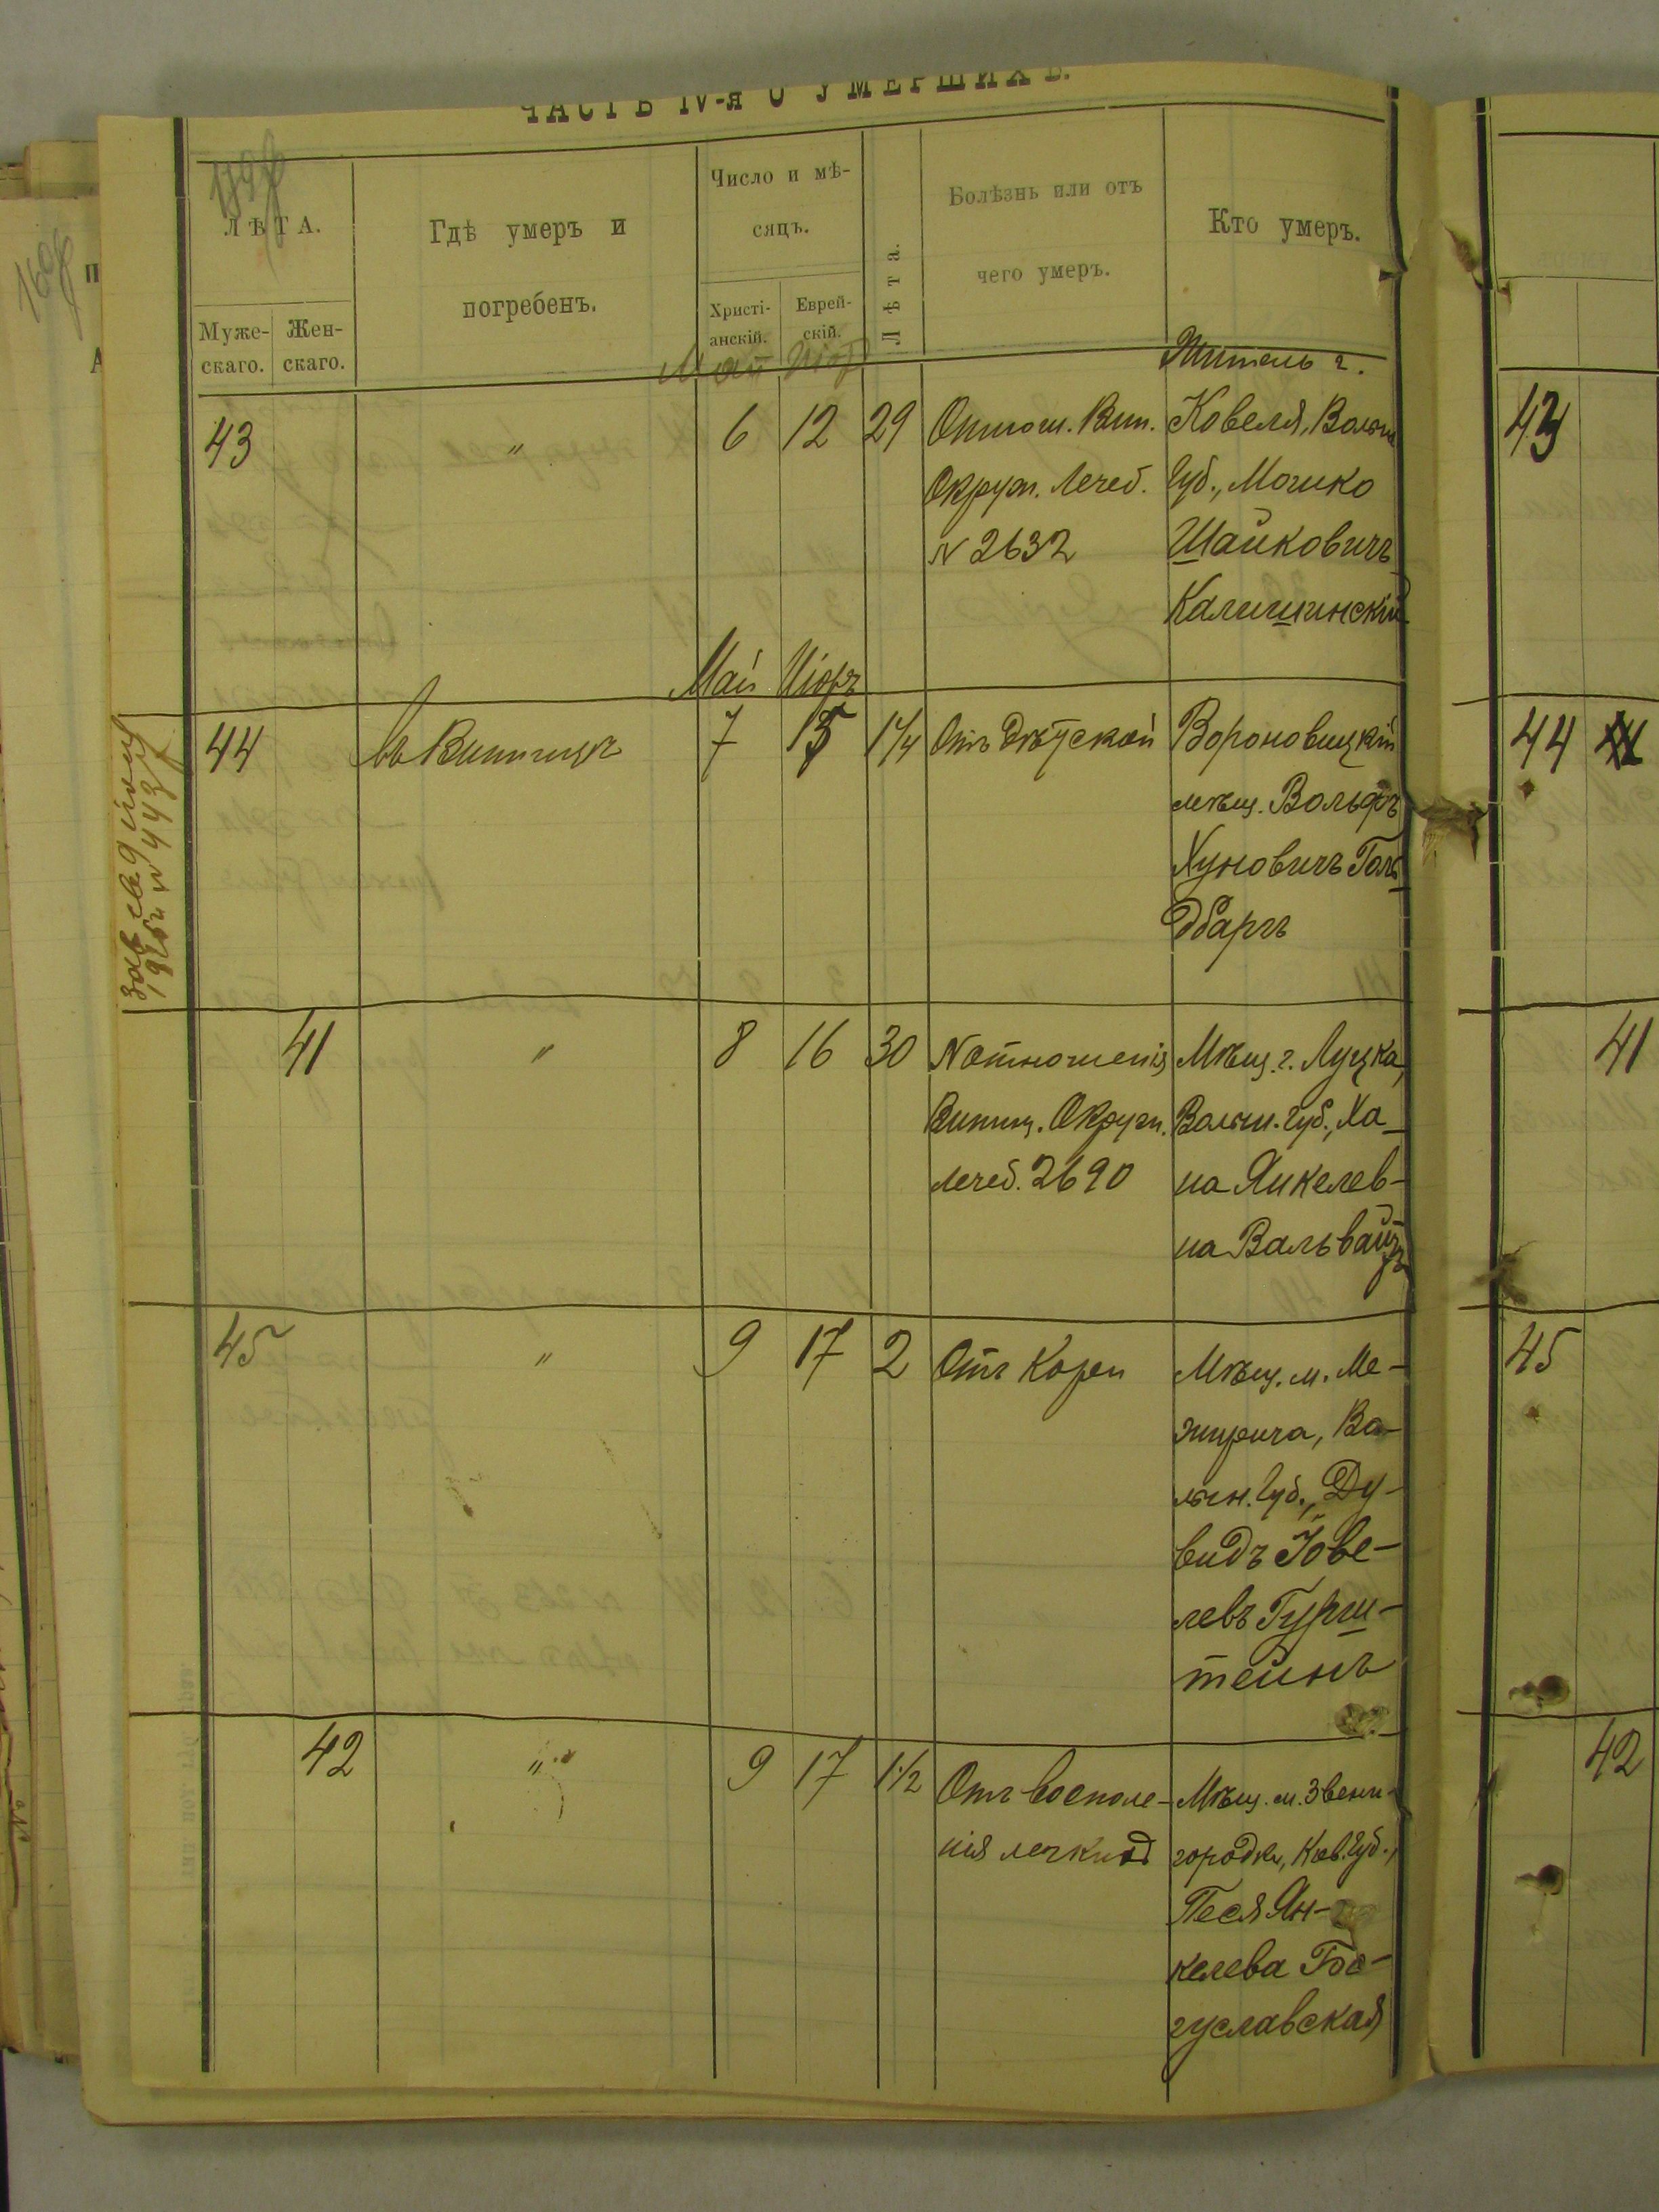 ЧАСТЬ IV-я О УМЕРШИХЪ.
ЛѢТА.
Муже-
скаго.
Жен-
скаго.
Гдѣ умеръ и
погребенъ.
Число и мѣ-
сяцъ.
Христі-
анскій.
Еврей-
скій.
Лѣта.
Болѣзнь или отъ
чего умеръ.
Кто умеръ.
Май Iіоръ
43 " 6 12 29
Отнош. Вин.
Окруж. Лечеб.
N 2632
Житель г.
Ковеля, Волын
Губ., Мошко
Шайковичъ
Калишинскій
Май Iіоръ
44 въ Винницѣ 7 15 1/4
Отъ Дѣтской
Вороновицкій
мѣщ. Вольфъ
Хуновичъ Голь
дбаргъ
41 " 8 16 30
N отношенія
Винниц. Окруж.
лечеб. 2690
Мѣщ. г. Луцка,
Волын. Губ., Ха-
на Янкелев-
на Вальвайзъ
45 " 9 17 2
Отъ Кори
Мѣщ. м. Ме-
жирича, Во-
лын. Губ., Ду-
видъ Іове-
левъ Гурш-
тейнъ
42 " 9 17 1 1/2
Отъ воспале-
нія легкихъ
Мѣщ. м. Звени-
городки, Кіев. Губ.,
Песя Ян-
келева Бо-
гуславская
43
44
41
45
42